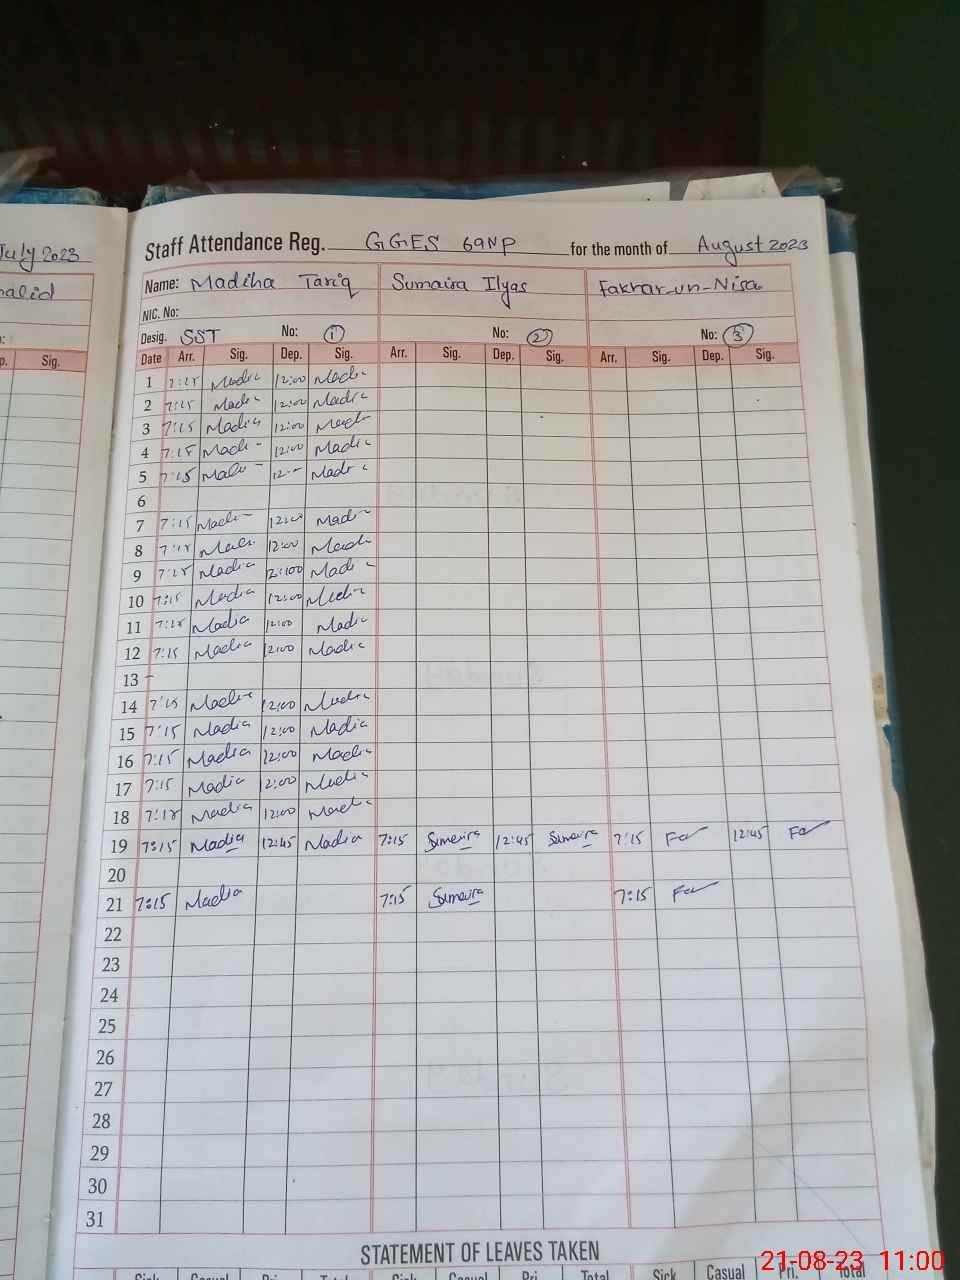 July 2023
Staff Attendance Reg. GGES 69NP for the month of August 2023
halid
Name: Madiha Tariq Sumaira Ilyas Fakhar-un-Nisa
NIC. No:
Desig. SST No: 1 No: 2 No: 3
p. Sig. Date Arr. Sig. Dep. Sig. Arr. Sig. Dep. Sig. Arr. Sig. Dep. Sig.
1 7:15 Madia 12:00 Madia
2 7:15 Madia 12:00 Madia
3 7:15 Madia 12:00 Madia
4 7:15 Madia 12:00 Madia
5 7:15 Madia Madia
6
7 7:15 Madia 12:00 Madia
8 7:15 Madia 12:00 Madia
9 7:15 Madia 12:100 Madia
10 7:15 Madia 12:00 Madia
11 7:15 Madia 12:00 Madia
12 7:15 Madia 12:00 Madia
13 -
14 7:15 Madia 12:00 Madia
15 7:15 Madia 12:00 Madia
16 7:15 Madia 12:00 Madia
17 7:15 Madia 12:00 Madia
18 7:15 Madia 12:00 Madia
19 7:15 Madia 12:45 Madia 7:15 Sumaira 12:45 Sumaira 7:15 Fa 12:45 Fa
20
21 7:15 Madia 7:15 Sumaira 7:15 Fa
22
23
24
25
26
27
28
29
30
31
STATEMENT OF LEAVES TAKEN
Sick Casual Pri. Total Sick Casual Pri. Total Sick Casual Pri. Total
21-08-23 11:00